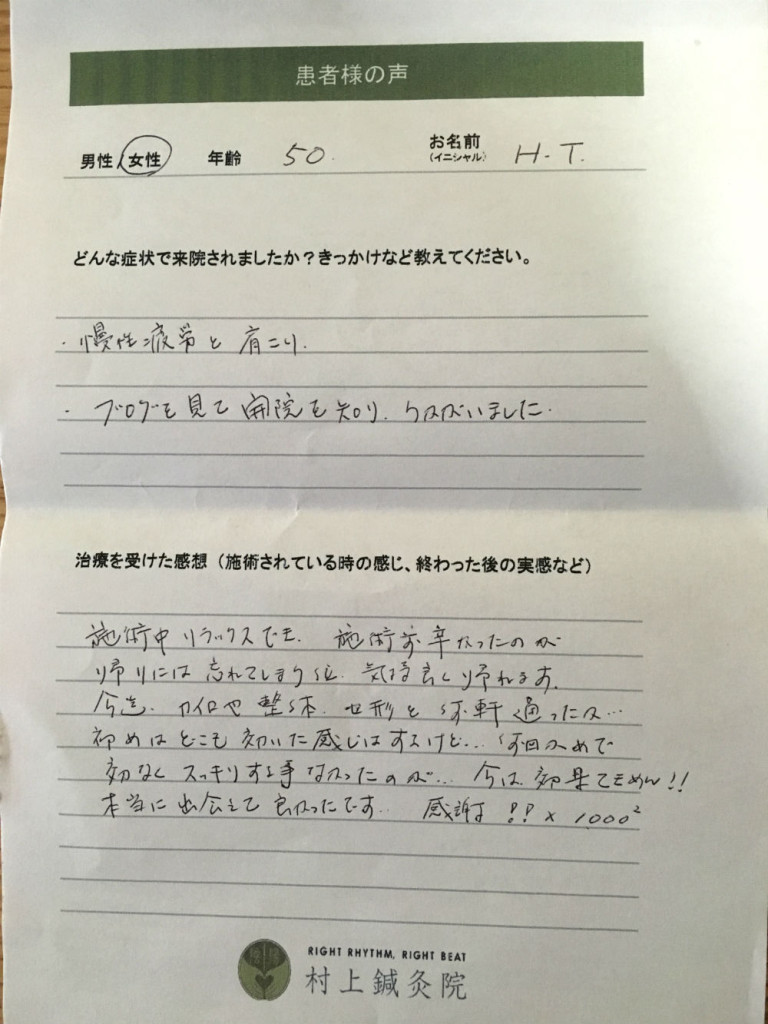 患者様の声
男性/女性 年齢 50. お名前(イニシャル) H-T.
どんな症状で来院されましたか?きっかけなど教えてください。
・慢性疲労と肩こり.
・ブログを見て開院を知り、うかがいました.
治療を受けた感想(施術されている時の感じ、終わった後の実感など)
施術中リラックスでき、施術前辛かったのが
帰りには忘れてしまう位、気持良く帰れます。
今迄、カイロや整体、 形と 軒通ったが…
初めはどこも効いた感じはするけど… 回 めで
効なくスッキリする事なかったのが… 今は効果 !!
本当に出会えて良かったです. 感謝 !! × 1000²
RIGHT RHYTHM, RIGHT BEAT
村上鍼灸院